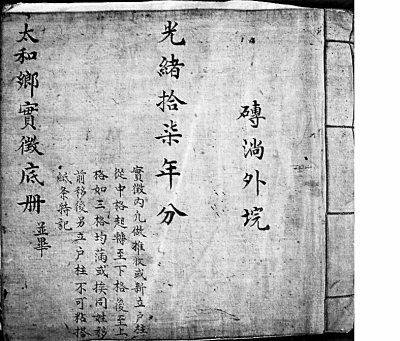 磚淌外垸
光緒拾柒年分
實徵內凡做推收或新立戶柱
從中格起轉至下格後至上
格如三格均滿或挨同姓移
前移後另立戶柱不可粘搭
紙条特記
太和鄉實徵底册
並畢